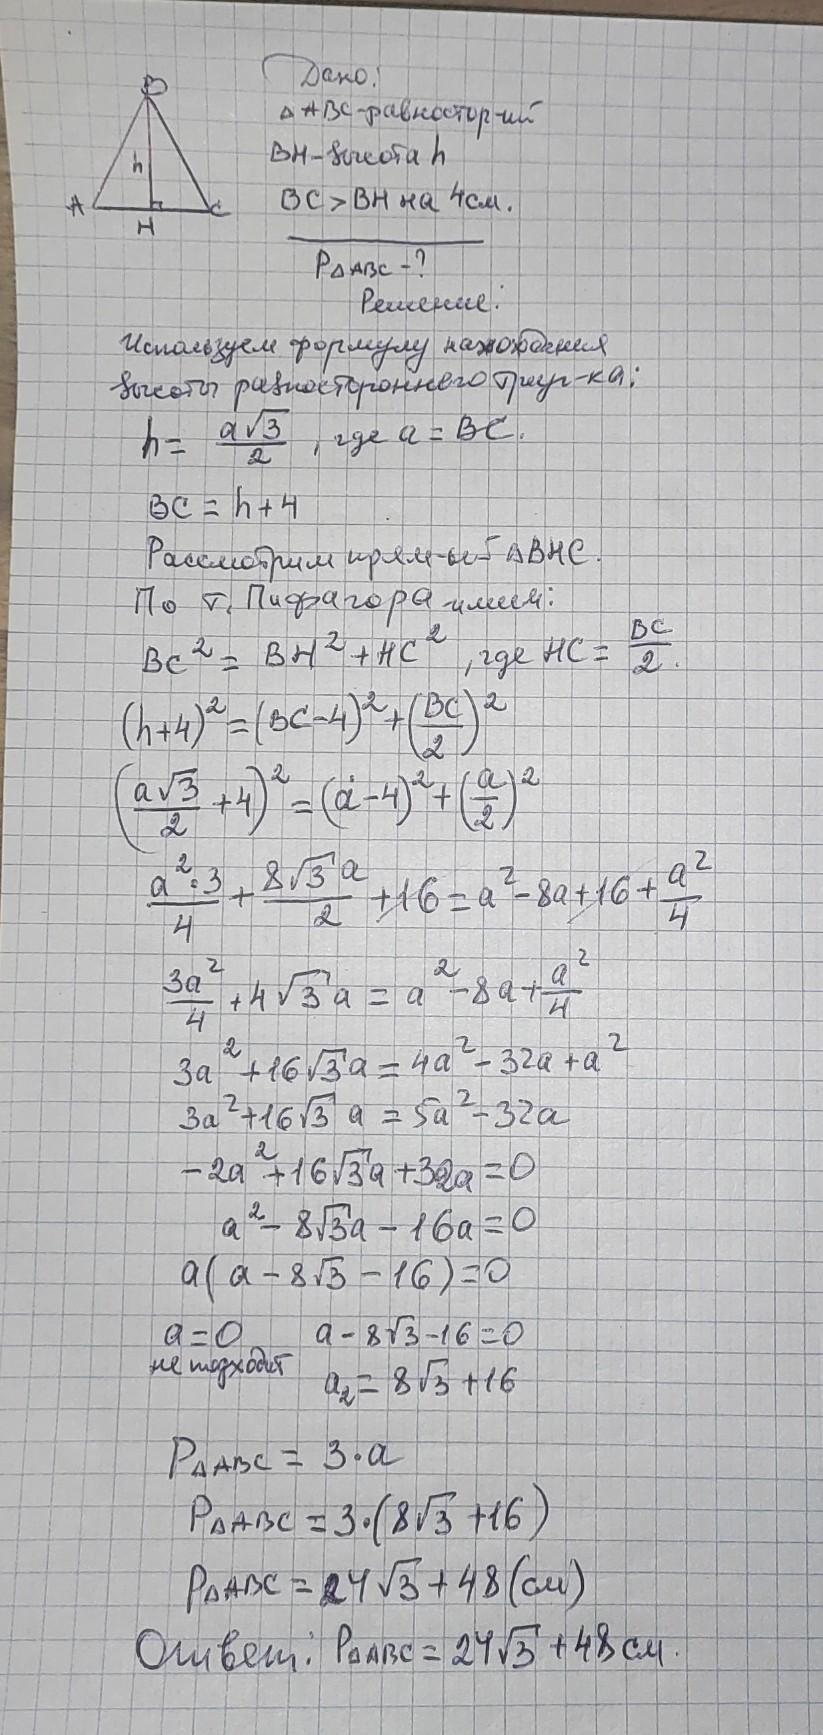 B
h
A
C
H
Дано:
△ABC-равностор-ий
BH-высота h
BC>BH на 4см.
P△ABC-?
Решение:
Используем формулу нахождения
высоты равностороннего треуг-ка:
h= a√3/2, где a=BC.
BC=h+4
Рассмотрим прям-ый △BHC.
По т. Пифагора имеем:
BC²=BH²+HC², где HC=BC/2.
(h+4)²=(BC-4)²+(BC/2)²
(a√3/2+4)²=(a-4)²+(a/2)²
a²·3/4+8√3a/2+16=a²-8a+16+a²/4
3a²/4+4√3a=a²-8a+a²/4
3a²+16√3a=4a²-32a+a²
3a²+16√3a=5a²-32a
-2a²+16√3a+32a=0
a²-8√3a-16a=0
a(a-8√3-16)=0
a=0 a-8√3-16=0
не подходит a₂=8√3+16
P△ABC=3·a
P△ABC=3·(8√3+16)
P△ABC=24√3+48(см)
Ответ: P△ABC=24√3+48см.